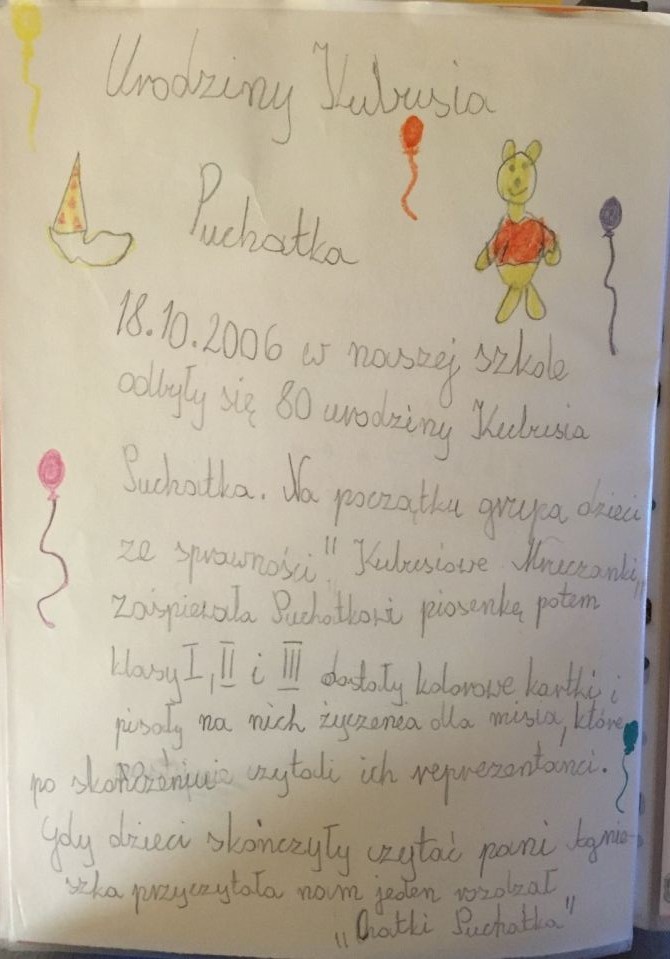 Urodziny Kubusia
Puchatka
18.10.2006 w naszej szkole
odbyły się 80 urodziny Kubusia
Puchatka. Na początku grupa dzieci
ze sprawności "Kubusiowe Mruczanki"
zaśpiewała Puchatkowi piosenkę potem
klasy I, II i III dostały kolorowe kartki i
pisały na nich życzenea dla misia, które
po skończeniu czytali ich reprezentańci.
Gdy dzieci skończyły czytać pani Agnie-
szka przyczytała nam jeden rozdział
"Chatki Puchatka"